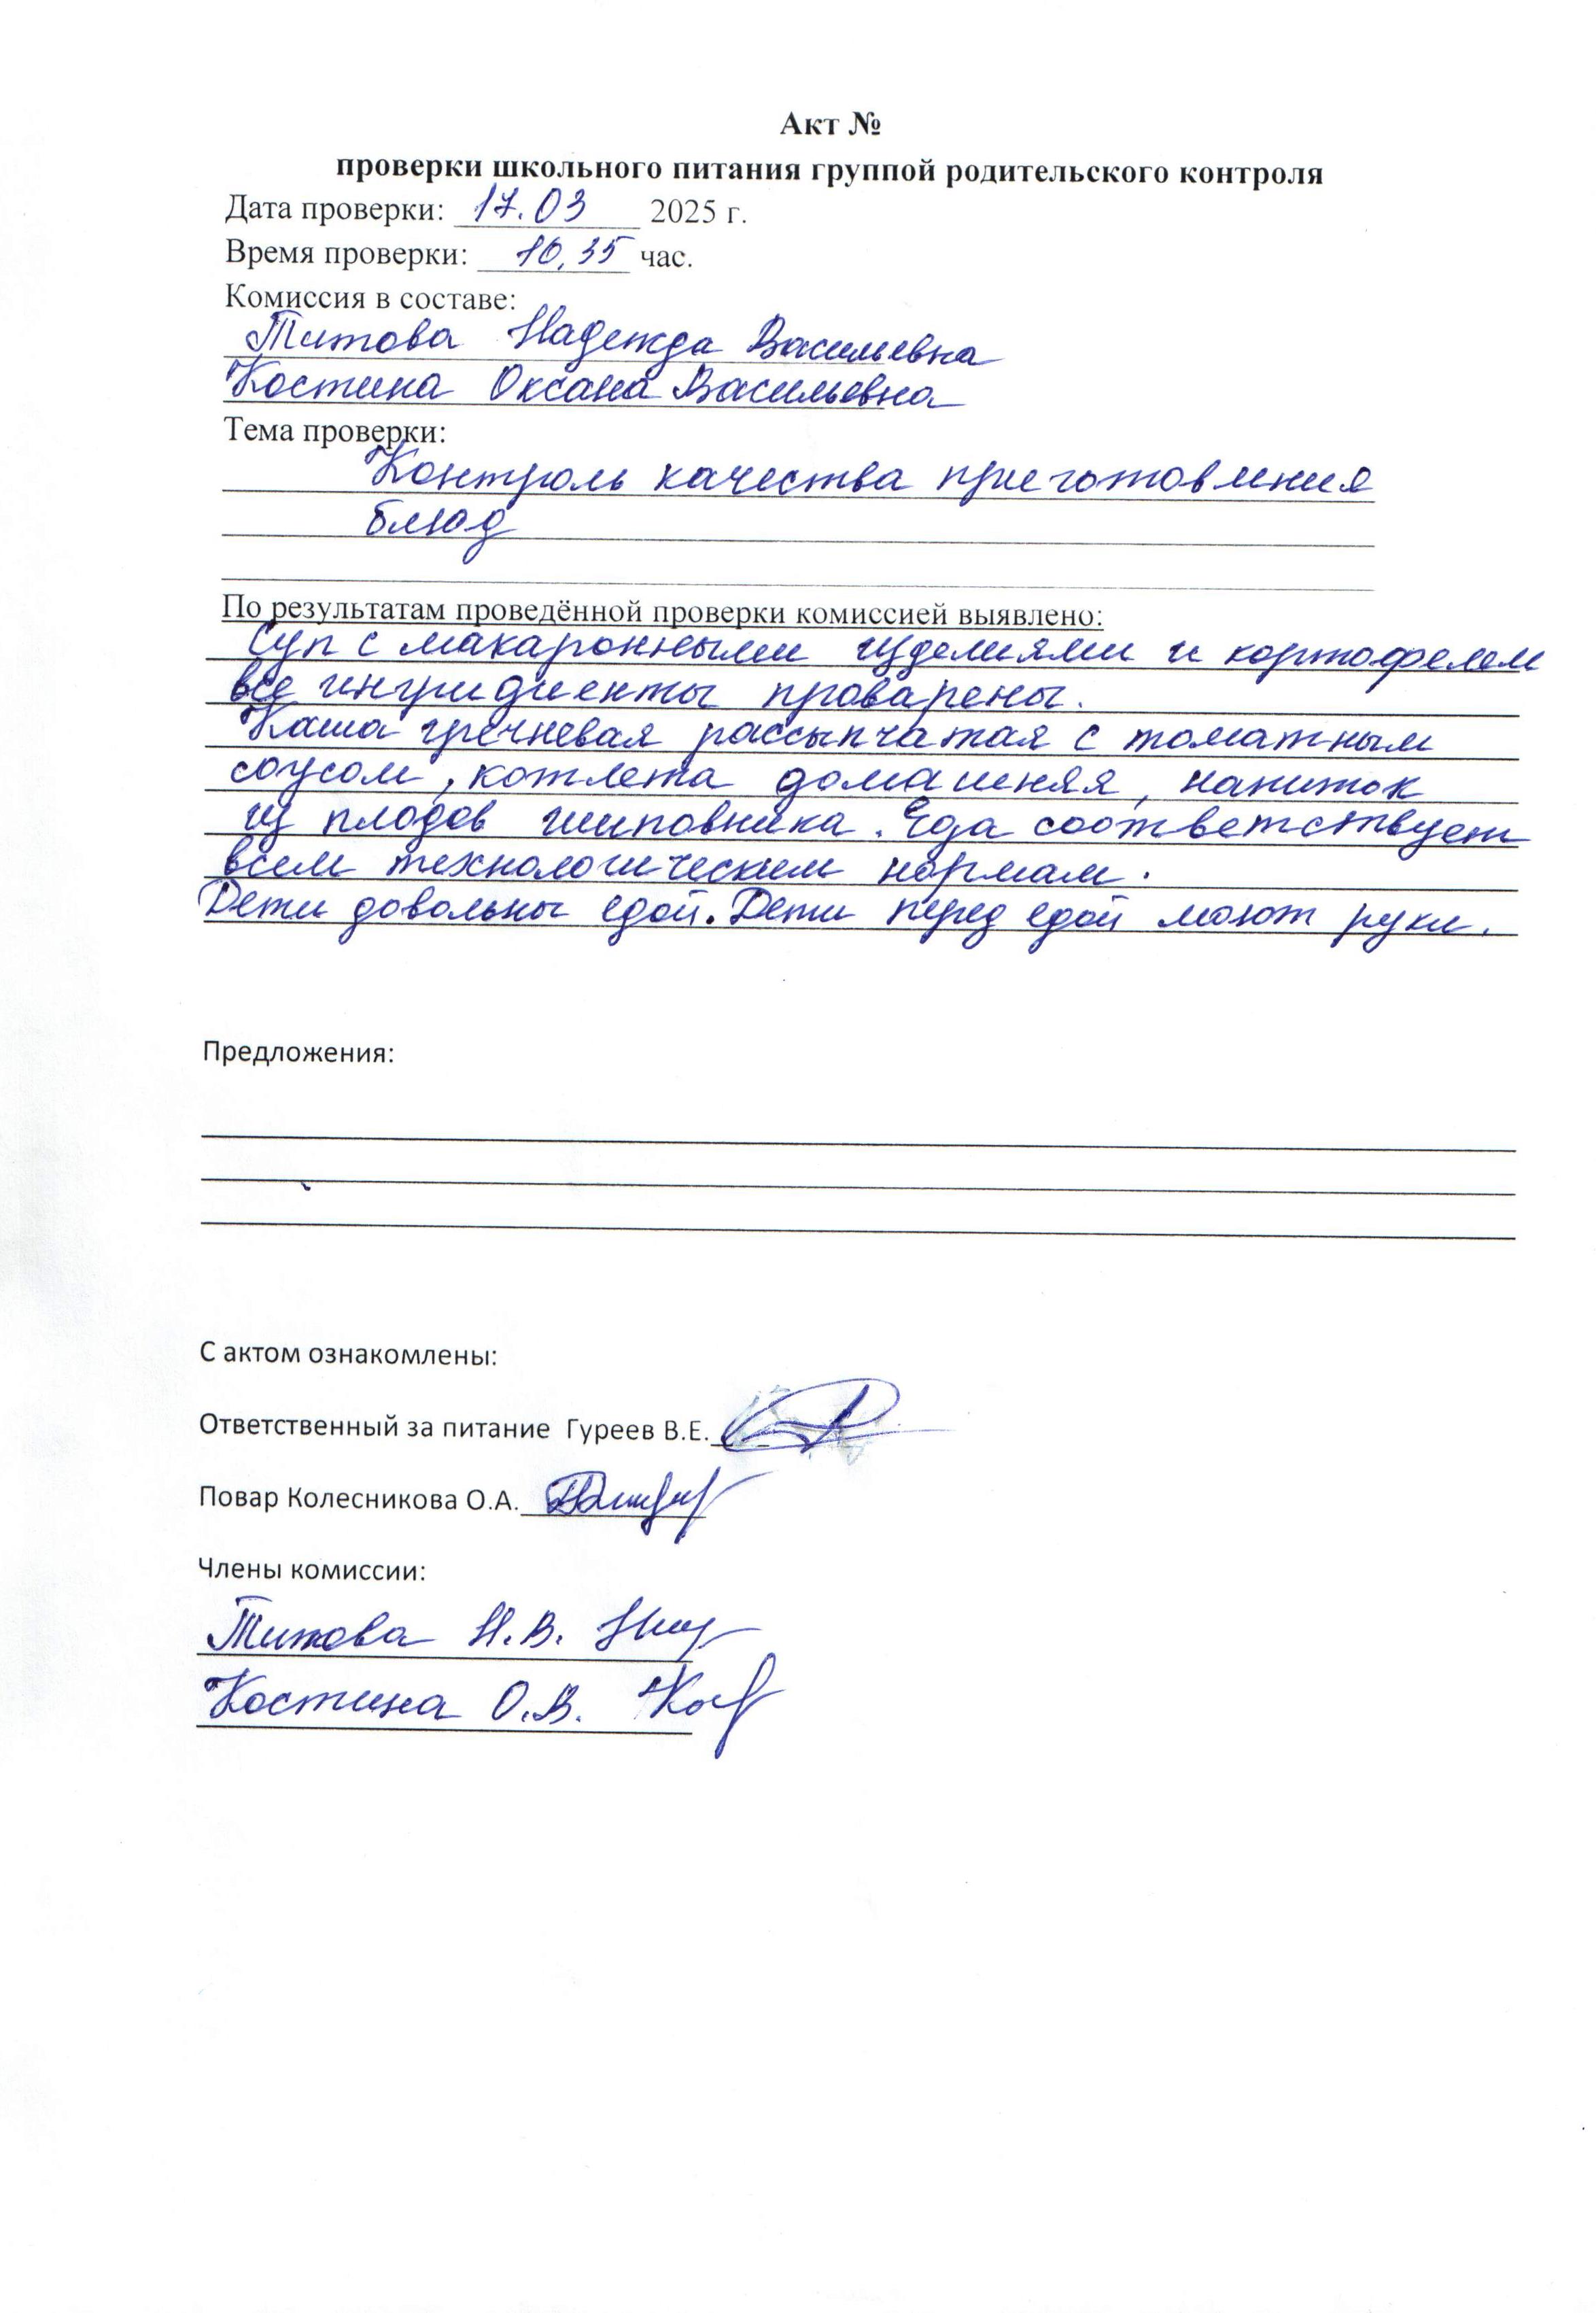 Акт №
проверки школьного питания группой родительского контроля
Дата проверки: 17.03 2025 г.
Время проверки: 10,35 час.
Комиссия в составе:
Титова Надежда Васильевна
Костина Оксана Васильевна
Тема проверки:
Контроль качества приготовления
блюд
По результатам проведённой проверки комиссией выявлено:
Суп с макаронными изделиями и кортофелем
все ингридиенты проварены.
Каша гречневая рассыпчатая с томатным
соусом, котлета домашняя, напиток
из плодов шиповника. Еда соответствует
всем технологическим нормам.
Дети довольны едой. Дети перед едой моют руки.
Предложения:
С актом ознакомлены:
Ответственный за питание Гуреев В.Е.
Повар Колесникова О.А.
Члены комиссии:
Титова Н.В.
Костина О.В.